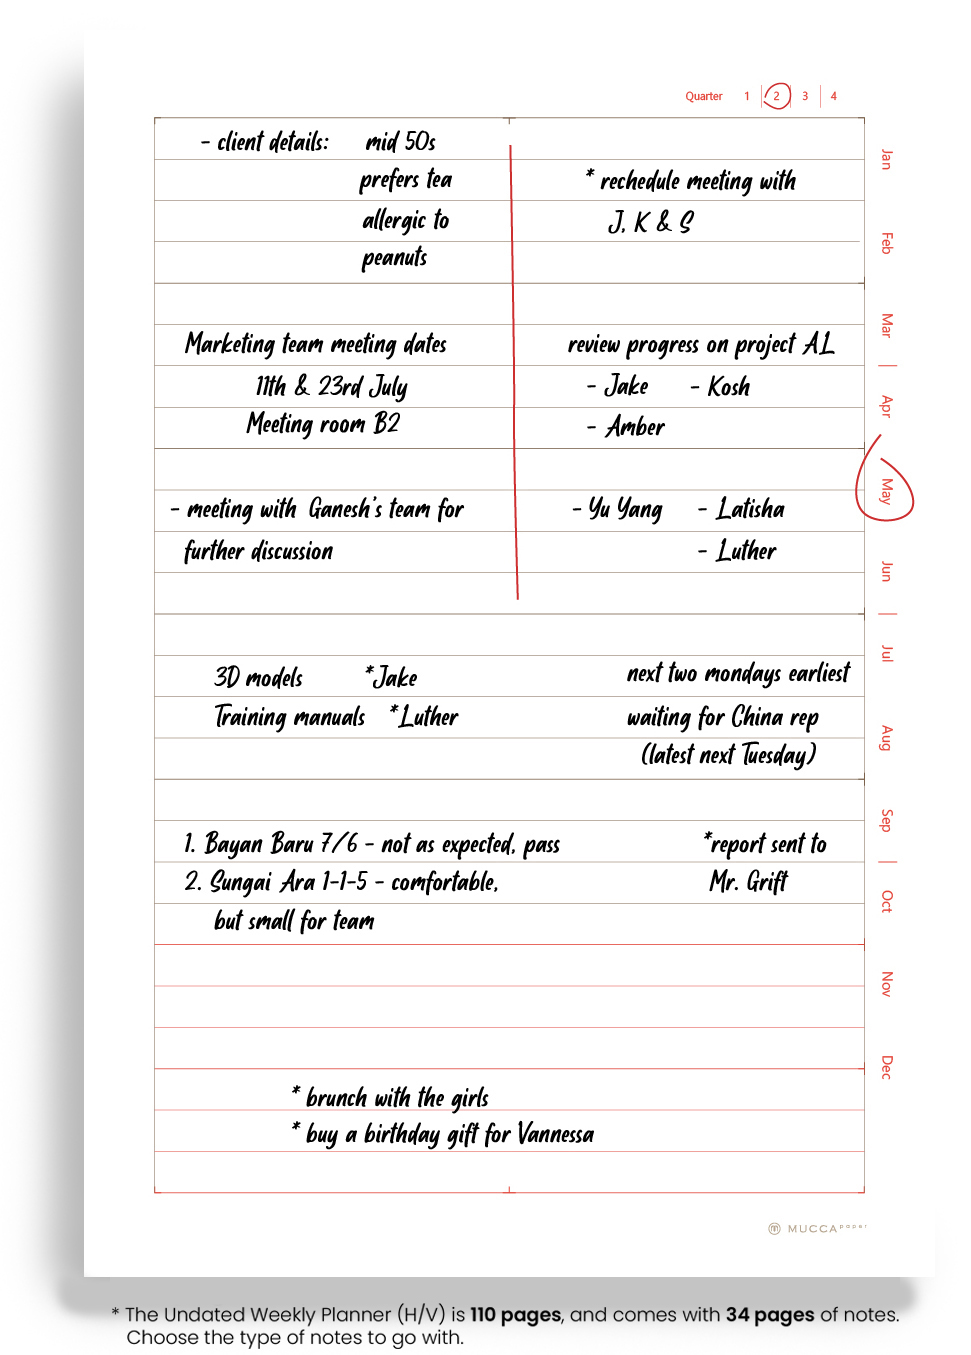 Quarter 1 2 3 4
- client details: mid 50s
prefers tea
allergic to
peanuts
* rechedule meeting with
J, K & S
Marketing team meeting dates
11th & 23rd July
Meeting room B2
review progress on project AL
- Jake - Kosh
- Amber
- meeting with Ganesh's team for
further discussion
- Yu Yang - Latisha
- Luther
3D models *Jake
Training manuals *Luther
next two mondays earliest
waiting for China rep
(latest next Tuesday)
1. Bayan Baru 7/6 - not as expected, pass
2. Sungai Ara 1-1-5 - comfortable,
but small for team
*report sent to
Mr. Grift
* brunch with the girls
* buy a birthday gift for Vannessa
Jan
Feb
Mar
Apr
May
Jun
Jul
Aug
Sep
Oct
Nov
Dec
MUCCA paper
* The Undated Weekly Planner (H/V) is 110 pages, and comes with 34 pages of notes.
Choose the type of notes to go with.